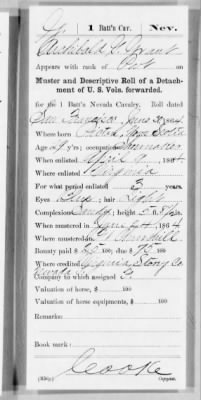 1 Batt'n Cav. Nev.
Archibald Grant
Appears with rank of Pvt on
Muster and Descriptive Roll of a Detach-
ment of U. S. Vols. forwarded.
for the 1 Batt'n Nevada Cavalry. Roll dated
San Francisco June 30, 186
Where born Nova Scotia
Age y'rs; occupation
When enlisted April 9, 1864
Where enlisted Virginia
For what period enlisted 3 years.
Eyes Blue; hair Light
Complexion Sandy; height
When mustered in 1864
Where mustered in Ft Churchill
Bounty paid $ 100; due $ 100
Where credited Virginia Storey Co
Nevada
Company to which assigned
Valuation of horse, $ 100
Valuation of horse equipments, $ 100
Remarks:
Book mark:
Cooke
Copyist.